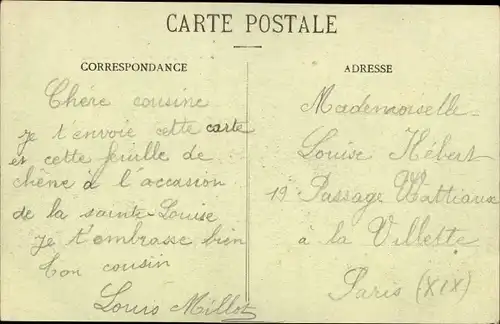 CARTE POSTALE
CORRESPONDANCE
Chère cousine
je t'envoie cette carte
et cette feuille de
chêne à l'occasion
de la sainte Louise
Je t'embrasse bien
Ton cousin
Louis Millot
ADRESSE
Mademoiselle
Louise Hébert
19 Passage Wattiaux
à la Villette
Paris (XIX)